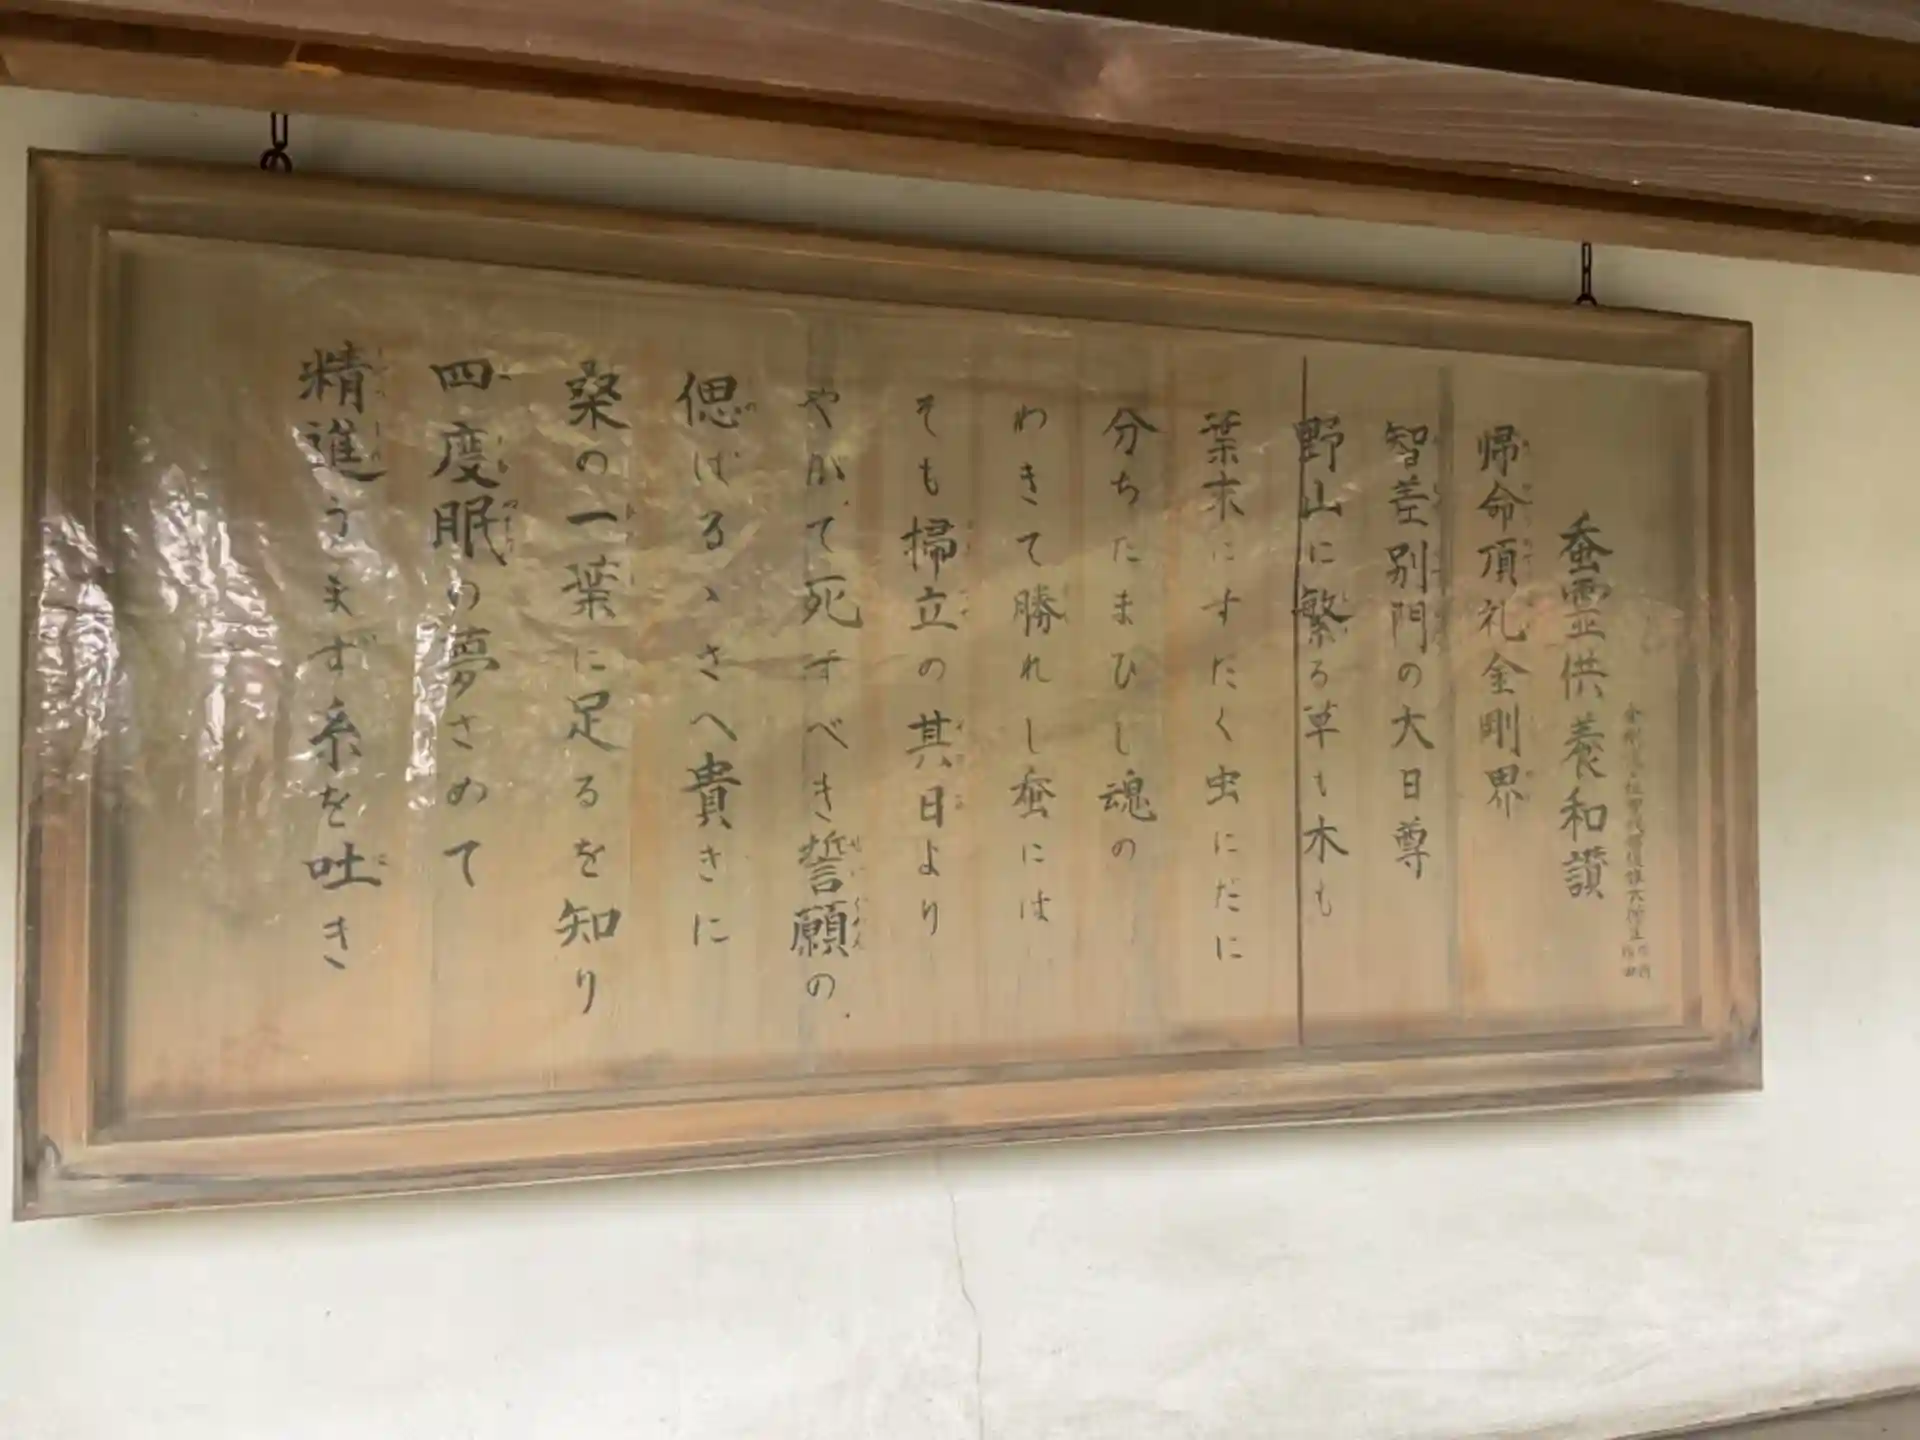 蚕霊供養和讃
帰命頂礼金剛界
智差別門の大日尊
野山に繁る草も木も
葉末にすだく虫にだに
分ちたまひし魂の
わきて勝れし蚕には
そも掃立の其日より
やがて死すべき誓願の
偲ばるゝさへ貴きに
桑の一葉に足るを知り
四度眠の夢さめて
精進うまず糸を吐き